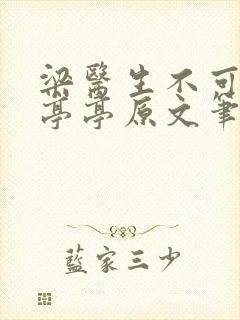 梁醫生不可
亭亭原文筆
藍家三少